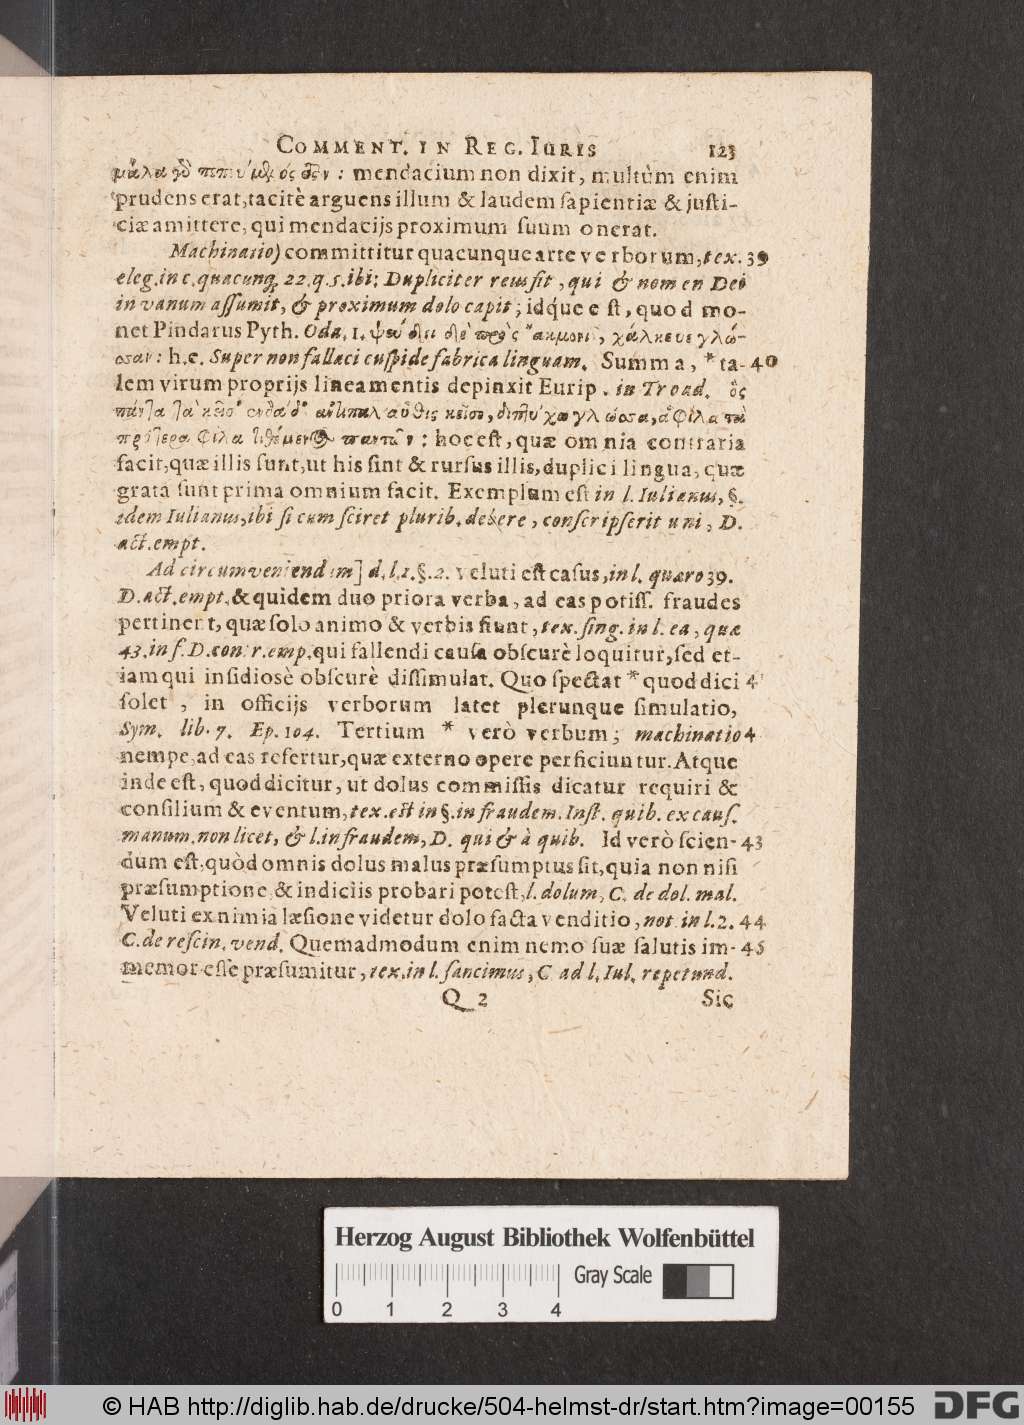 COMMENT. IN REG. IURIS 123
μάλα : mendacium non dixit, multùm enim
prudens erat, tacitè arguens illum & laudem sapientiæ & justi-
ciæ amittere, qui mendacijs proximum suum onerat.
Machinatio) committitur quacunque arte verborum, tex. 39
eleg. in c. quacunq, 22. q. 5. ibi: Dupliciter reus sit, qui & nomen Dei
in vanum assumit, & proximum dolo capit; idq́ue est, quod mo-
net Pindarus Pyth. Oda. 1. ἀψευδεῖ δὲ πρὸς ἄκμονι, χάλκευε γλῶσ-
σαν: h. e. Super non fallaci cuspide fabrica linguam. Summa, * ta- 40
lem virum proprijs lineamentis depinxit Eurip. in Troad. ὃς
πάντα τὰ κεῖσ' ἐνθάδ' ἀντίπαλ' αὖθις κεῖσε, διπτύχω γλώσσα, ἄφιλα τὰ
πρότερα φίλα τιθέμενος πάντων: hoc est, quæ omnia contraria
facit, quæ illis sunt, ut his sint & rursus illis, duplici lingua, quæ
grata sunt prima omnium facit. Exemplum est in l. Iulianus, §.
idem Iulianus, ibi si cum sciret plurib. debere, conscripserit uni, D.
act. empt.
Ad circumveniendum] d. l. 1. §. 2. veluti est casus, in l. quæro 39.
D. act. empt. & quidem duo priora verba, ad eas potiss. fraudes
pertinent, quæ solo animo & verbis fiunt, tex. sing. in l. ea, quæ
43. in f. D. contr. emp. qui fallendi causa obscurè loquitur, sed et-
iam qui insidiosè obscurè dissimulat. Quo spectat * quod dici 4
solet, in officijs verborum latet plerunque simulatio,
Sym. lib. 7. Ep. 104. Tertium * verò verbum; machinatio 4
nempe, ad eas refertur, quæ externo opere perficiuntur. Atque
inde est, quod dicitur, ut dolus commissis dicatur requiri &
consilium & eventum, tex. est in §. in fraudem. Inst. quib. ex caus.
manum. non licet, & l. in fraudem, D. qui & à quib. Id verò scien- 43
dum est, quòd omnis dolus malus præsumptus sit, quia non nisi
præsumptione & indiciis probari potest, l. dolum, C. de dol. mal.
Veluti ex nimia læsione videtur dolo facta venditio, not. in l. 2. 44
C. de rescin. vend. Quemadmodum enim nemo suæ salutis im- 45
memor esse præsumitur, tex. in l. sancimus, C ad l. Iul. repetund.
Q 2 Sic
Herzog August Bibliothek Wolfenbüttel
Gray Scale
0 1 2 3 4
© HAB http://diglib.hab.de/drucke/504-helmst-dr/start.htm?image=00155 DFG